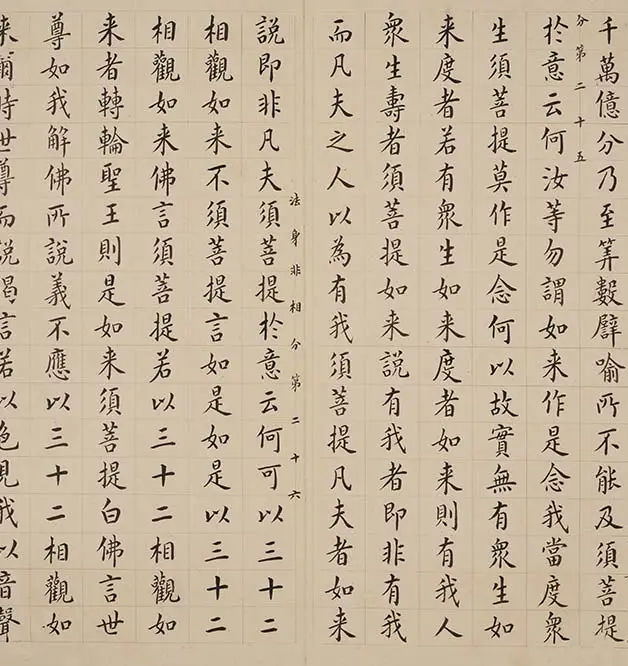 千萬億分乃至筭數譬喻所不能及須菩提
分第二十五
於意云何汝等勿謂如来作是念我當度衆
生須菩提莫作是念何以故實無有衆生如
来度者若有衆生如来度者如来則有我人
衆生壽者須菩提如来說有我者即非有我
而凡夫之人以為有我須菩提凡夫者如来
法身非相分第二十六
說即非凡夫須菩提於意云何可以三十二
相觀如来不須菩提言如是如是以三十二
相觀如来佛言須菩提若以三十二相觀如
来者轉輪聖王則是如来須菩提白佛言世
尊如我解佛所說義不應以三十二相觀如
来爾時世尊而說偈言若以色見我以音聲